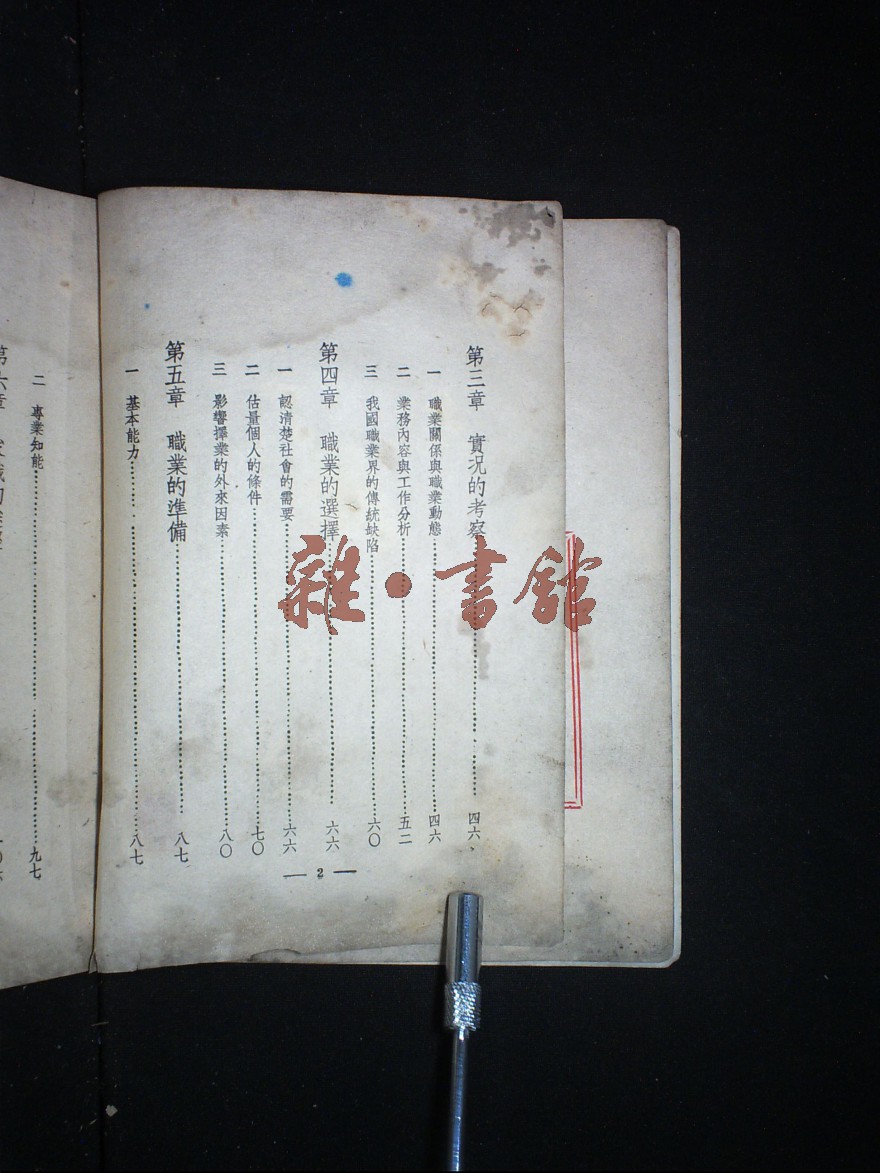 第三章　實況的考察……四六
一　職業關係與職業動態……四六
二　業務內容與工作分析……五二
三　我國職業界的傳統缺陷……六〇
第四章　職業的選擇……六六
一　認清楚社會的需要……六六
二　估量個人的條件……七〇
三　影響擇業的外來因素……八〇
第五章　職業的準備……八七
一　基本能力……八七
— 2 —
二　專業知能……九七
第六章
雜·書館